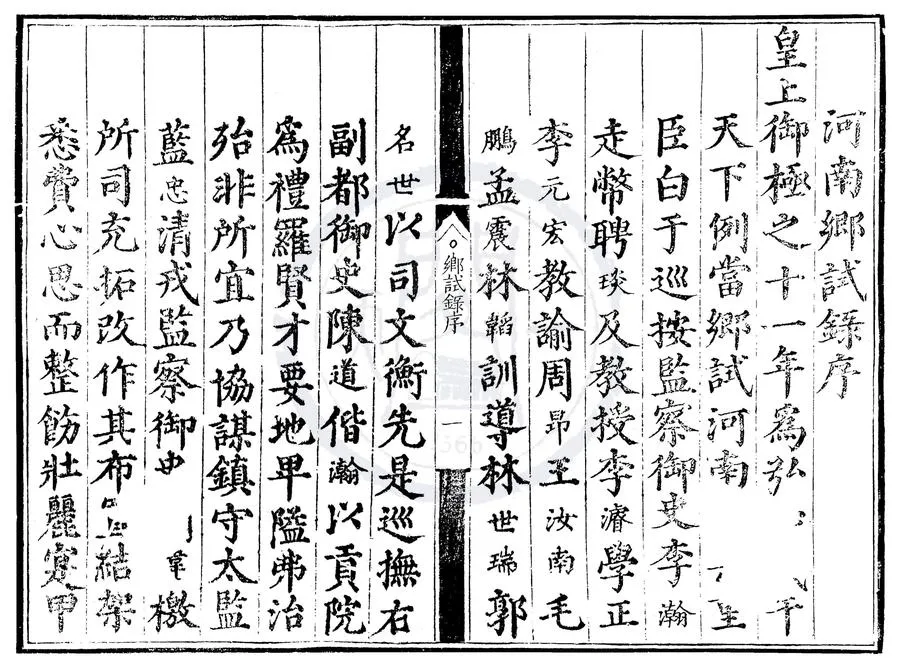 河南鄉試錄序
皇上御極之十一年爲弘
天下例當鄉試河南
臣白于巡按監察御史李瀚
走幣聘琰及教授李濬學正
李元宏教諭周昂王汝南毛
鵬孟震林韜訓導林世瑞郭
鄉試錄序 一
名世以司文衡先是巡撫右
副都御史陳道偕瀚以貢院
爲禮羅賢才要地卑隘弗治
殆非所宜乃協謀鎮守太監
藍忠清戎監察御史 檄
所司充拓改作其布 結架
悉費心思而整飭壯麗寔甲